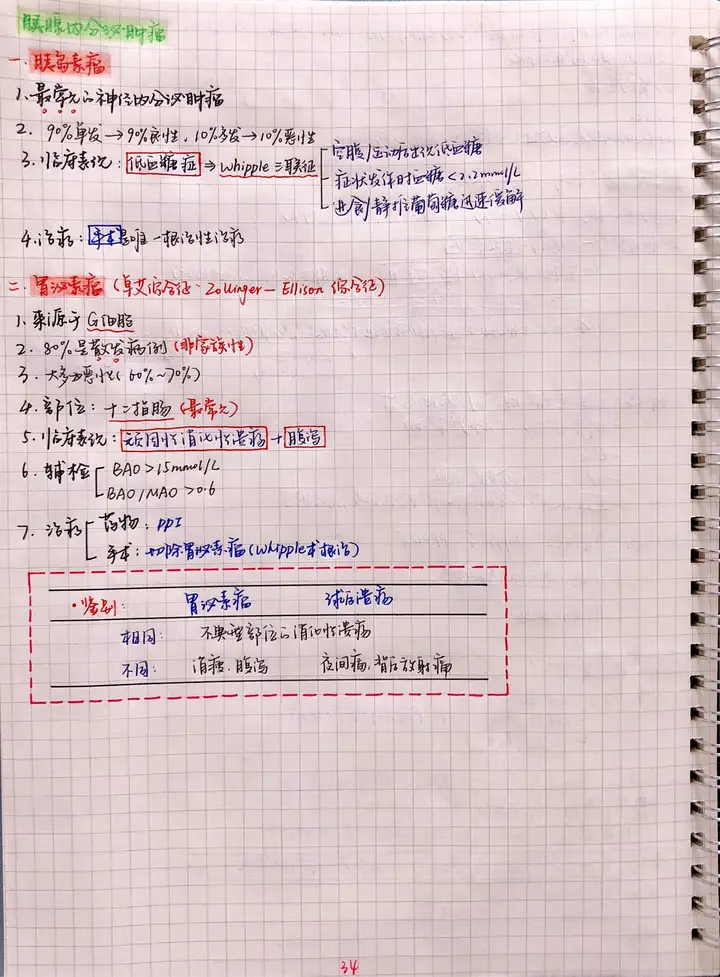 胰腺内分泌肿瘤
一. 胰岛素瘤
1. 最常见的神经内分泌肿瘤
2. 90%单发→90%良性, 10%多发→10%恶性
3. 临床表现: 低血糖症 ⇒ whipple三联征
空腹/运动后出现低血糖
症状发作时血糖<2.2mmol/L
进食/静推葡萄糖迅速缓解
4. 治疗: 手术是唯一根治性治疗
二. 胃泌素瘤 (卓艾综合征·Zollinger—Ellison 综合征)
1. 来源于G细胞
2. 80%是散发病例(非家族性)
3. 大多为恶性(60%~70%)
4. 部位: 十二指肠 (最常见)
5. 临床表现: 顽固性消化性溃疡 + 腹泻
6. 辅检
BAO>15mmol/L
BAO/MAO>0.6
7. 治疗
药物: PPI
手术: 切除胃泌素瘤(whipple术根治)
·鉴别: 胃泌素瘤 球后溃疡
相同: 不典型部位的消化性溃疡
不同: 消瘦、腹泻 夜间痛, 背后放射痛
34